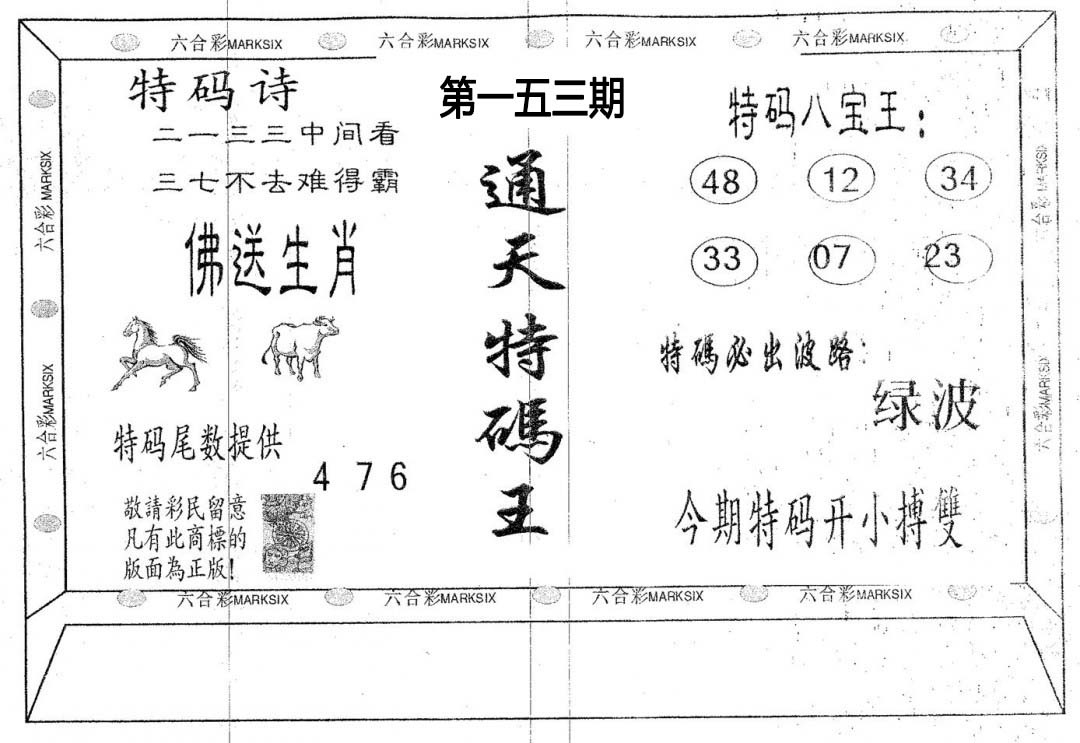 六合彩MARKSIX 六合彩MARKSIX 六合彩MARKSIX 六合彩MARKSIX
六合彩MARKSIX
六合彩MARKSIX
特码诗
二一三三中间看
三七不去难得霸
佛送生肖
特码尾数提供
4 7 6
敬請彩民留意
凡有此商標的
版面為正版!
第一五三期
通天特碼王
特码八宝王:
48 12 34
33 07 23
特碼必出波路:
绿波
今期特码开小搏雙
六合彩MARKSIX
六合彩MARKSIX
六合彩MARKSIX 六合彩MARKSIX 六合彩MARKSIX 六合彩MARKSIX